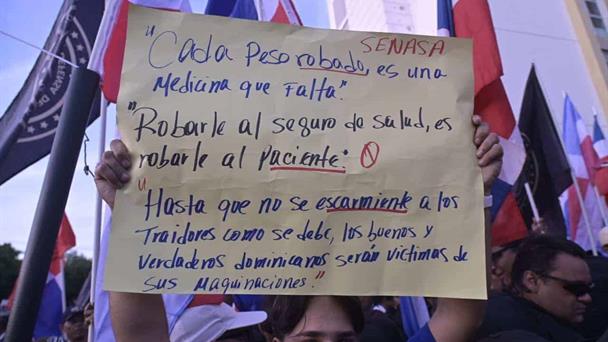 SENASA
"Cada Peso robado, es una
Medicina que Falta".
"Robarle al seguro de salud, es
robarle al Paciente".
"Hasta que no se escarmiente a los
Traidores como se debe, los buenos y
Verdaderos dominicanos serán victimas de
sus Maquinaciones."